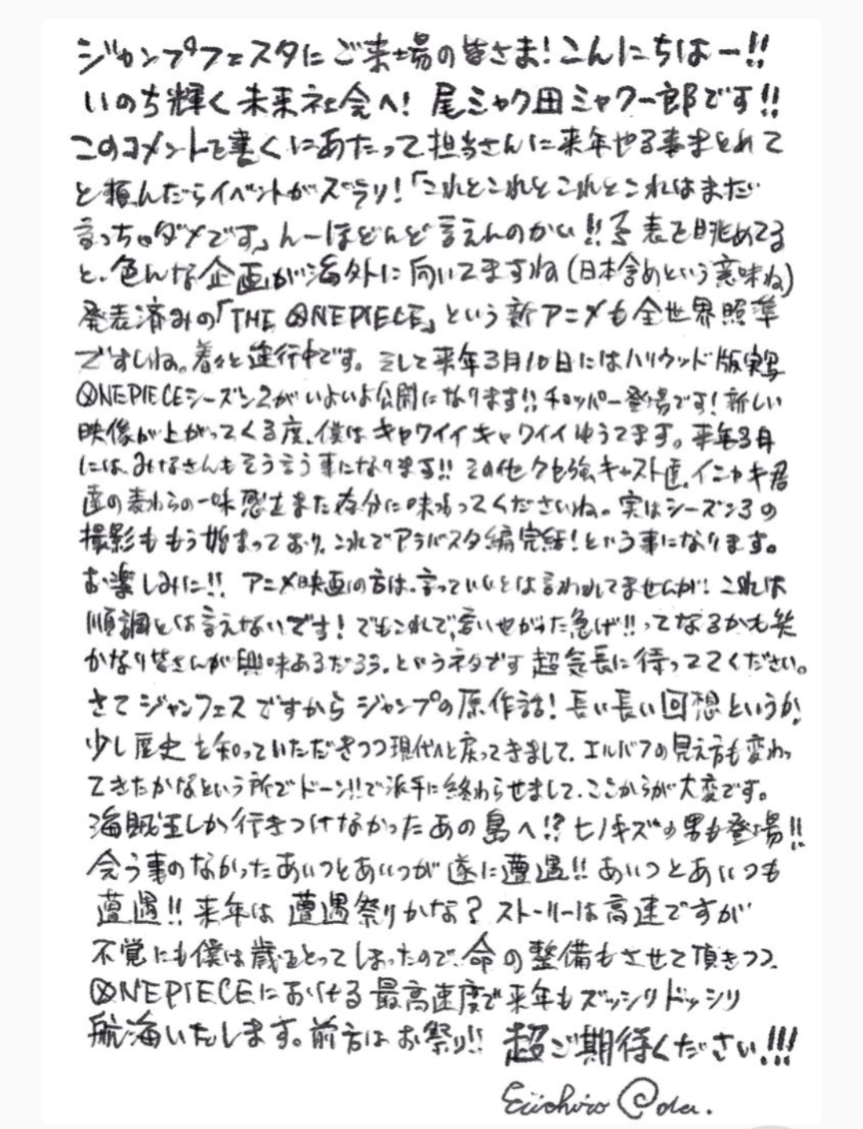 ジャンプフェスタにご来場の皆さま!こんにちはー!!
いのち輝く未来社会へ! 尾ミャク田ミャク一郎です!!
このコメントを書くにあたって担当さんに来年やる事まとめて
と頼んだらイベントがズラリ!「これとこれとこれとこれはまだ
言っちゃダメです」んーほどんど言えんのかい!!予表を眺めてる
と、色んな企画が海外に向いてますね(日本含めという意味ね)
発表済みの「THE ONE PIECE」という新アニメも全世界照準
ですしね。着々と進行中です。そして来年3月10日にはハリウッド版実写
ONE PIECEシーズン2がいよいよ公開になります!!チョッパー登場です!新しい
映像が上がってくる度、僕はキャワイイキャワイイゆうてます。来年3月
には、みなさんもそう言う事になります!!その他クセ強キャスト達、イニャキ君
達の麦わらの一味感もまた存分に味わってくださいね。実はシーズン3の
撮影ももう始まっており、これでアラバスタ編完結!という事になります。
お楽しみに!! アニメ映画の方は、言っていいとは言われてませんが!これは
順調とは言えないです!でもこれで、言いやがった急げ!!ってなるかも笑
かなり皆さんが興味あるだろう、というネタです超気長に待っててください。
さてジャンフェスですからジャンプの原作話!長い長い回想というか、
少し歴史を知っていただきつつ現代へと戻ってきまして、エルバフの見え方も変わっ
てきたかなという所でドーン!!で派手に終わらせまして、ここからが大変です。
海賊王しか行きつけなかったあの島へ!?ヒノキズの男も登場!!
会う事のなかったあいつとあいつが遂に遭遇!! あいつとあいつも
遭遇!! 来年は遭遇祭りかな? ストーリーは高速ですが
不覚にも僕は歳をとってしまったので、命の整備もさせて頂きつつ、
ONE PIECEにおける最高速度で来年もズッシリドッシリ
航海いたします。前方はお祭り!! 超ご期待ください!!!
Eiichiro Oda.